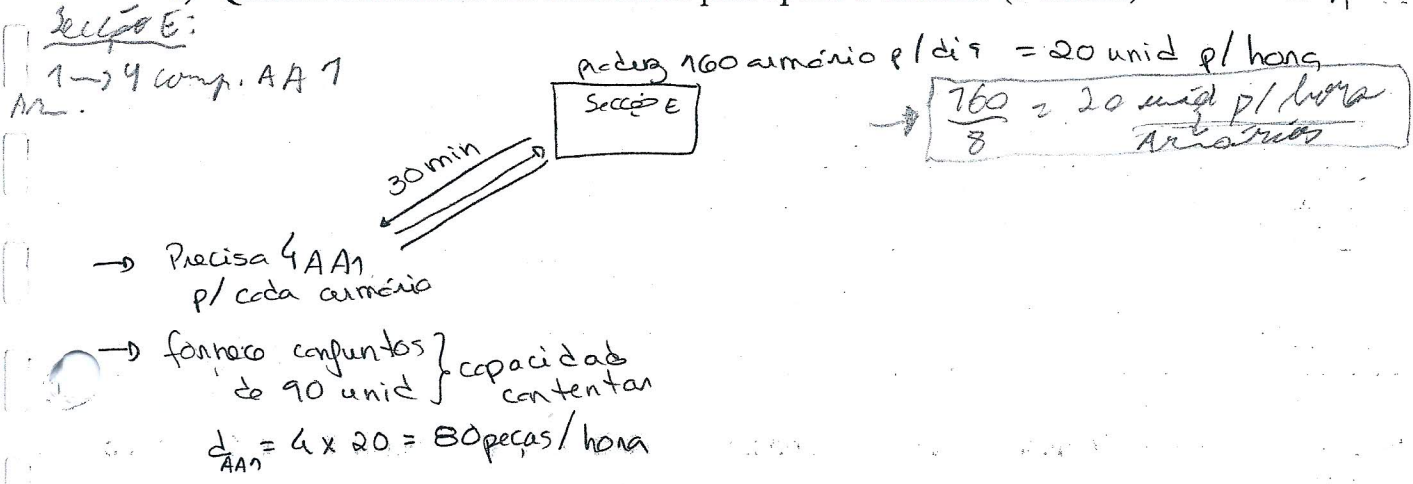 Secção E:
1 → 4 comp. AA 1
produz 160 armário p/ dia = 20 unid p/ hora
Secção E
→ 160/8 = 20 unid p/ hora
Armários
30 min
→ Precisa 4 AA1
p/ cada armário
→ fornece conjuntos
de 90 unid } capacidade
contentor
d AA1 = 4 x 20 = 80 peças / hora